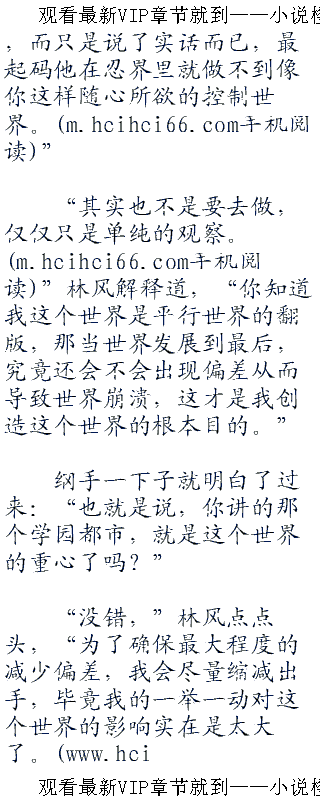 观看最新VIP章节就到——小说检
，而只是说了实话而已，最
起码他在忍界里就做不到像
你这样随心所欲的控制世
界。(m.hcihci66.com手机阅
读)”
“其实也不是要去做，
仅仅只是单纯的观察。
(m.hcihci66.com手机阅
读)”林风解释道，“你知道
我这个世界是平行世界的翻
版，那当世界发展到最后，
究竟还会不会出现偏差从而
导致世界崩溃，这才是我创
造这个世界的根本目的。”
纲手一下子就明白了过
来：“也就是说，你讲的那
个学园都市，就是这个世界
的重心了吗？”
“没错，”林风点点
头，“为了确保最大程度的
减少偏差，我会尽量缩减出
手，毕竟我的一举一动对这
个世界的影响实在是太大
了。(www.hci
观看最新VIP章节就到——小说检